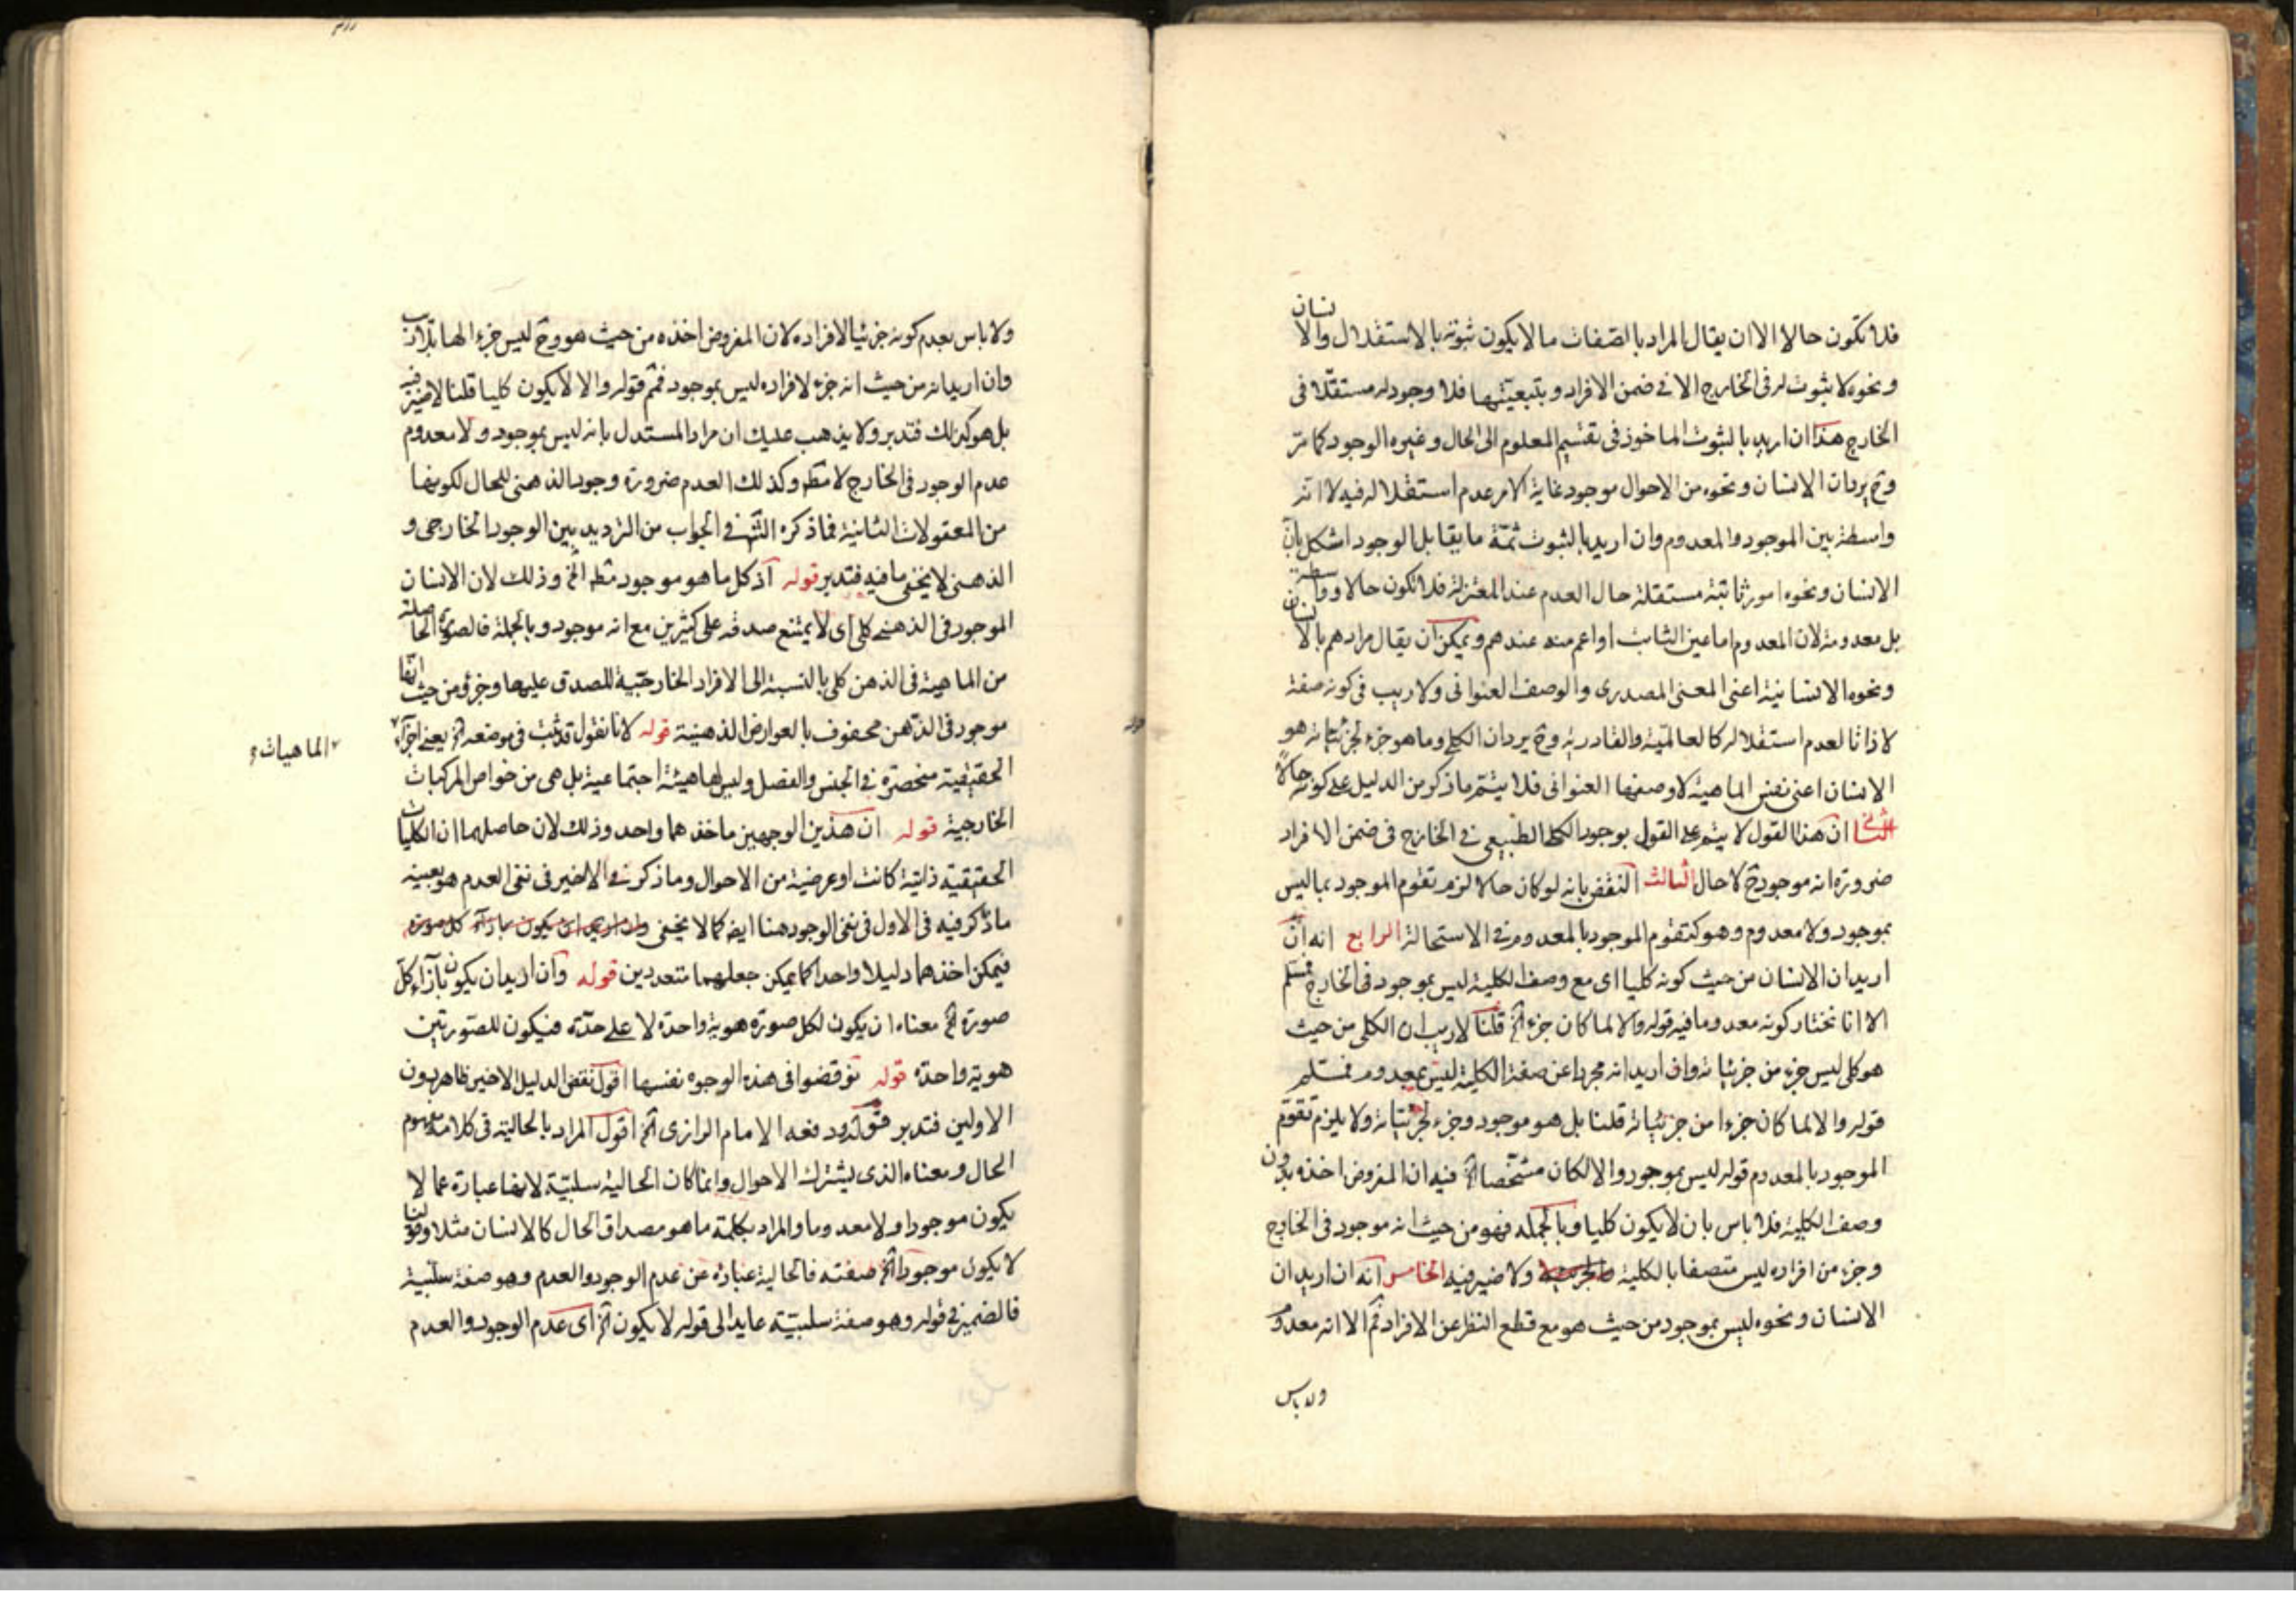 فلا تكون حالا الا ان يقال المراد بالصفات ما لا يكون ثبوته بالاستقلال والانسان
ونحوه لا ثبوت له في الخارج الا في ضمن الافراد وبتبعيتها فلا وجود له مستقلا في
الخارج هذا ان اريد بالثبوت الماخوذ في تقسيم المعلوم الى الحال وغيره الوجود كما مر
وح يرد ان الانسان ونحوه من الاحوال موجود غاية الامر عدم استقلاله فيه لا انه
واسطة بين الموجود والمعدوم وان اريد بالثبوت ثمة ما يقابل الوجود اشكل بان
الانسان ونحوه امور ثابتة مستقلة حال العدم عند المعتزلة فلا تكون حالا وواسطة
بل معدومة لان المعدوم اما عين الثابت او اعم منه عندهم ويمكن ان يقال مرادهم بالانسان
ونحوه الانسانية اعنى المعنى المصدرى والوصف العنوانى ولا ريب في كونه صفة
لا ذاتا لعدم استقلاله كالعالمية والقادرية وح يرد ان الكلى وما هو جزء لجزئياته هو
الانسان اعنى نفس الماهية لا وصفها العنوانى فلا يتم ما ذكر من الدليل على كونه حالا
الثانى ان هذا القول لا يتم على القول بوجود الكلى الطبيعى في الخارج في ضمن الافراد
ضرورة انه موجود ح لا حال الثالث النقض بانه لو كان حالا لزم تقوم الموجود بما ليس
بموجود ولا معدوم وهو كتقوم الموجود بالمعدوم في الاستحالة الرابع انه ان
اريد ان الانسان من حيث كونه كليا اى مع وصف الكلية ليس بموجود في الخارج فمسلم
الا انا نختار كونه معدوما فيه قوله والا لما كان جزء الخ قلنا لا ريب ان الكلى من حيث
هو كلى ليس جزء من جزئياته وان اريد انه مجردا عن صفة الكلية ليس بمعدوم فمسلم
قوله والا لما كان جزءا من جزئياته قلنا بل هو موجود وجزء لجزئياته ولا يلزم تقوم
الموجود بالمعدوم قوله ليس بموجود والا لكان مشخصا الخ فيه ان المفروض اخذه بدون
وصف الكلية فلا باس بان لا يكون كليا وبالجمله فهو من حيث انه موجود في الخارج
وجزء من افراده ليس متصفا بالكلية ولا ضير فيه الخامس انه ان اريد ان
الانسان ونحوه ليس بموجود من حيث هو مع قطع النظر عن الافراد فم الا انه معدوم
ولا باس
ولا باس بعدم كونه جزئيا لافراده لان المفروض اخذه من حيث هو وح ليس جزء لها
وان اريد انه من حيث انه جزء لافراده ليس بموجود فم قوله والا لا يكون كليا قلنا لا ضير فيه
بل هو كذلك فتدبر ولا يذهب عليك ان مراد المستدل بانه ليس بموجود ولا معدوم
عدم الوجود في الخارج لا مط وكذلك العدم ضرورة وجود الذهنى للحال لكونها
من المعقولات الثانية فما ذكره الش في الجواب من الترديد بين الوجود الخارجى و
الذهنى لا يخفى ما فيه فتدبر قوله اذ كل ما هو موجود مط الخ وذلك لان الانسان
الموجود في الذهن كلى اى لا يمتنع صدقه على كثيرين مع انه موجود وبالجملة فالصورة الحاصلة
من الماهية في الذهن كلى بالنسبة الى الافراد الخارجية للصدق عليها وجزئى من حيث انها
موجود في الذهن محفوف بالعوارض الذهنية قوله لانا نقول قد ثبت في موضعه الخ يعنى اجزاء
الماهيات
الحقيقية منحصرة في الجنس والفصل وليس لها هيئة اجتماعية بل هى من خواص المركبات
الخارجية قوله ان هذين الوجهين ماخذهما واحد وذلك لان حاصلهما ان الكليات
الحقيقية ذاتية كانت او عرضية من الاحوال وما ذكر في الاخير في نفى العدم هو بعينه
ما ذكر فيه في الاول في نفى الوجود هنا ايضا كما لا يخفى وان اريد ان يكون بازاء كل صورة
فيمكن اخذهما دليلا واحدا كما يمكن جعلهما متعددين قوله وان اريد ان يكون بازاء كل
صورة الخ معناه ان يكون لكل صورة هوية واحدة لا على حدة فيكون للصورتين
هوية واحدة قوله نوقضوا في هذه الوجوه نفسها اقول نقض الدليل الاخير ظاهر دون
الاولين فتدبر قوله ودفعه الامام الرازى الخ اقول المراد بالحالية في كلامه مفهوم
الحال ومعناه الذى يشترك الاحوال وانما كان الحالية سلبية لانها عبارة عما لا
يكون موجودا ولا معدوما والمراد بكلمة ما هو مصداق الحال كالانسان مثلا وقولنا
لا يكون موجودا الخ صفته فالحالية عبارة عن عدم الوجود والعدم وهو صفة سلبية
فالضمير في قوله وهو صفة سلبية عايد الى قوله لا يكون الخ اى عدم الوجود والعدم